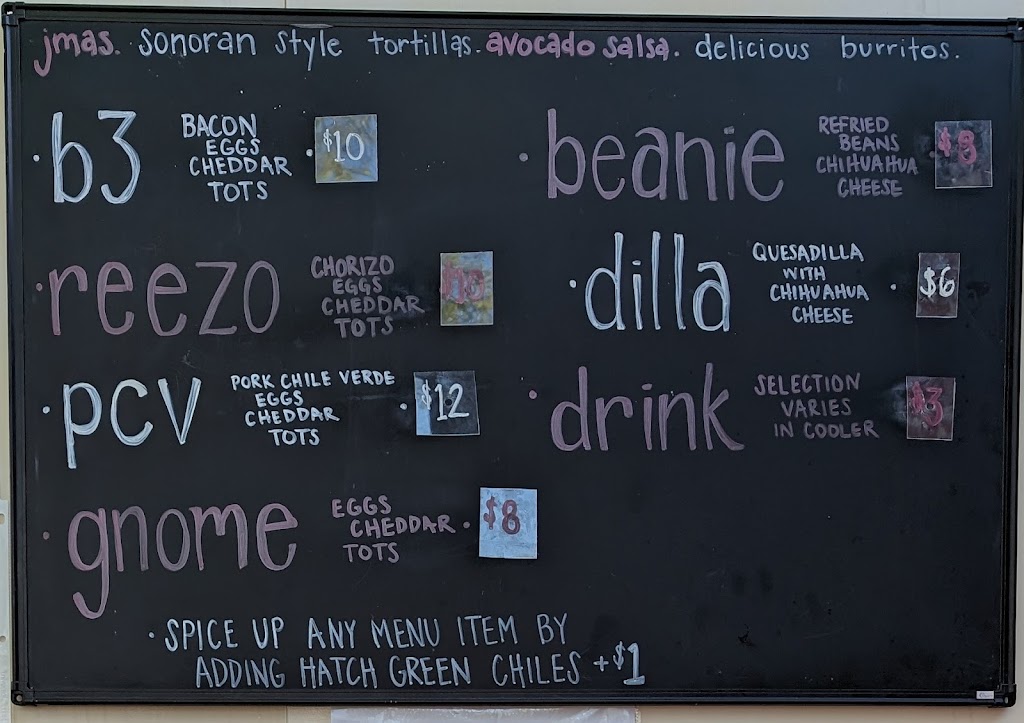 jmas. sonoran style tortillas. avocado salsa. delicious burritos.
· b3
BACON
EGGS
CHEDDAR
TOTS
· $10
· reezo
CHORIZO
EGGS
CHEDDAR
TOTS
$10
· pcv
PORK CHILE VERDE
EGGS
CHEDDAR
TOTS
· $12
· gnome
EGGS
CHEDDAR
TOTS
· $8
· beanie
REFRIED
BEANS
CHIHUAHUA
CHEESE
· $8
· dilla
QUESADILLA
WITH
CHIHUAHUA
CHEESE
· $6
· drink
SELECTION
VARIES
IN COOLER
$3
· SPICE UP ANY MENU ITEM BY
ADDING HATCH GREEN CHILES +$1